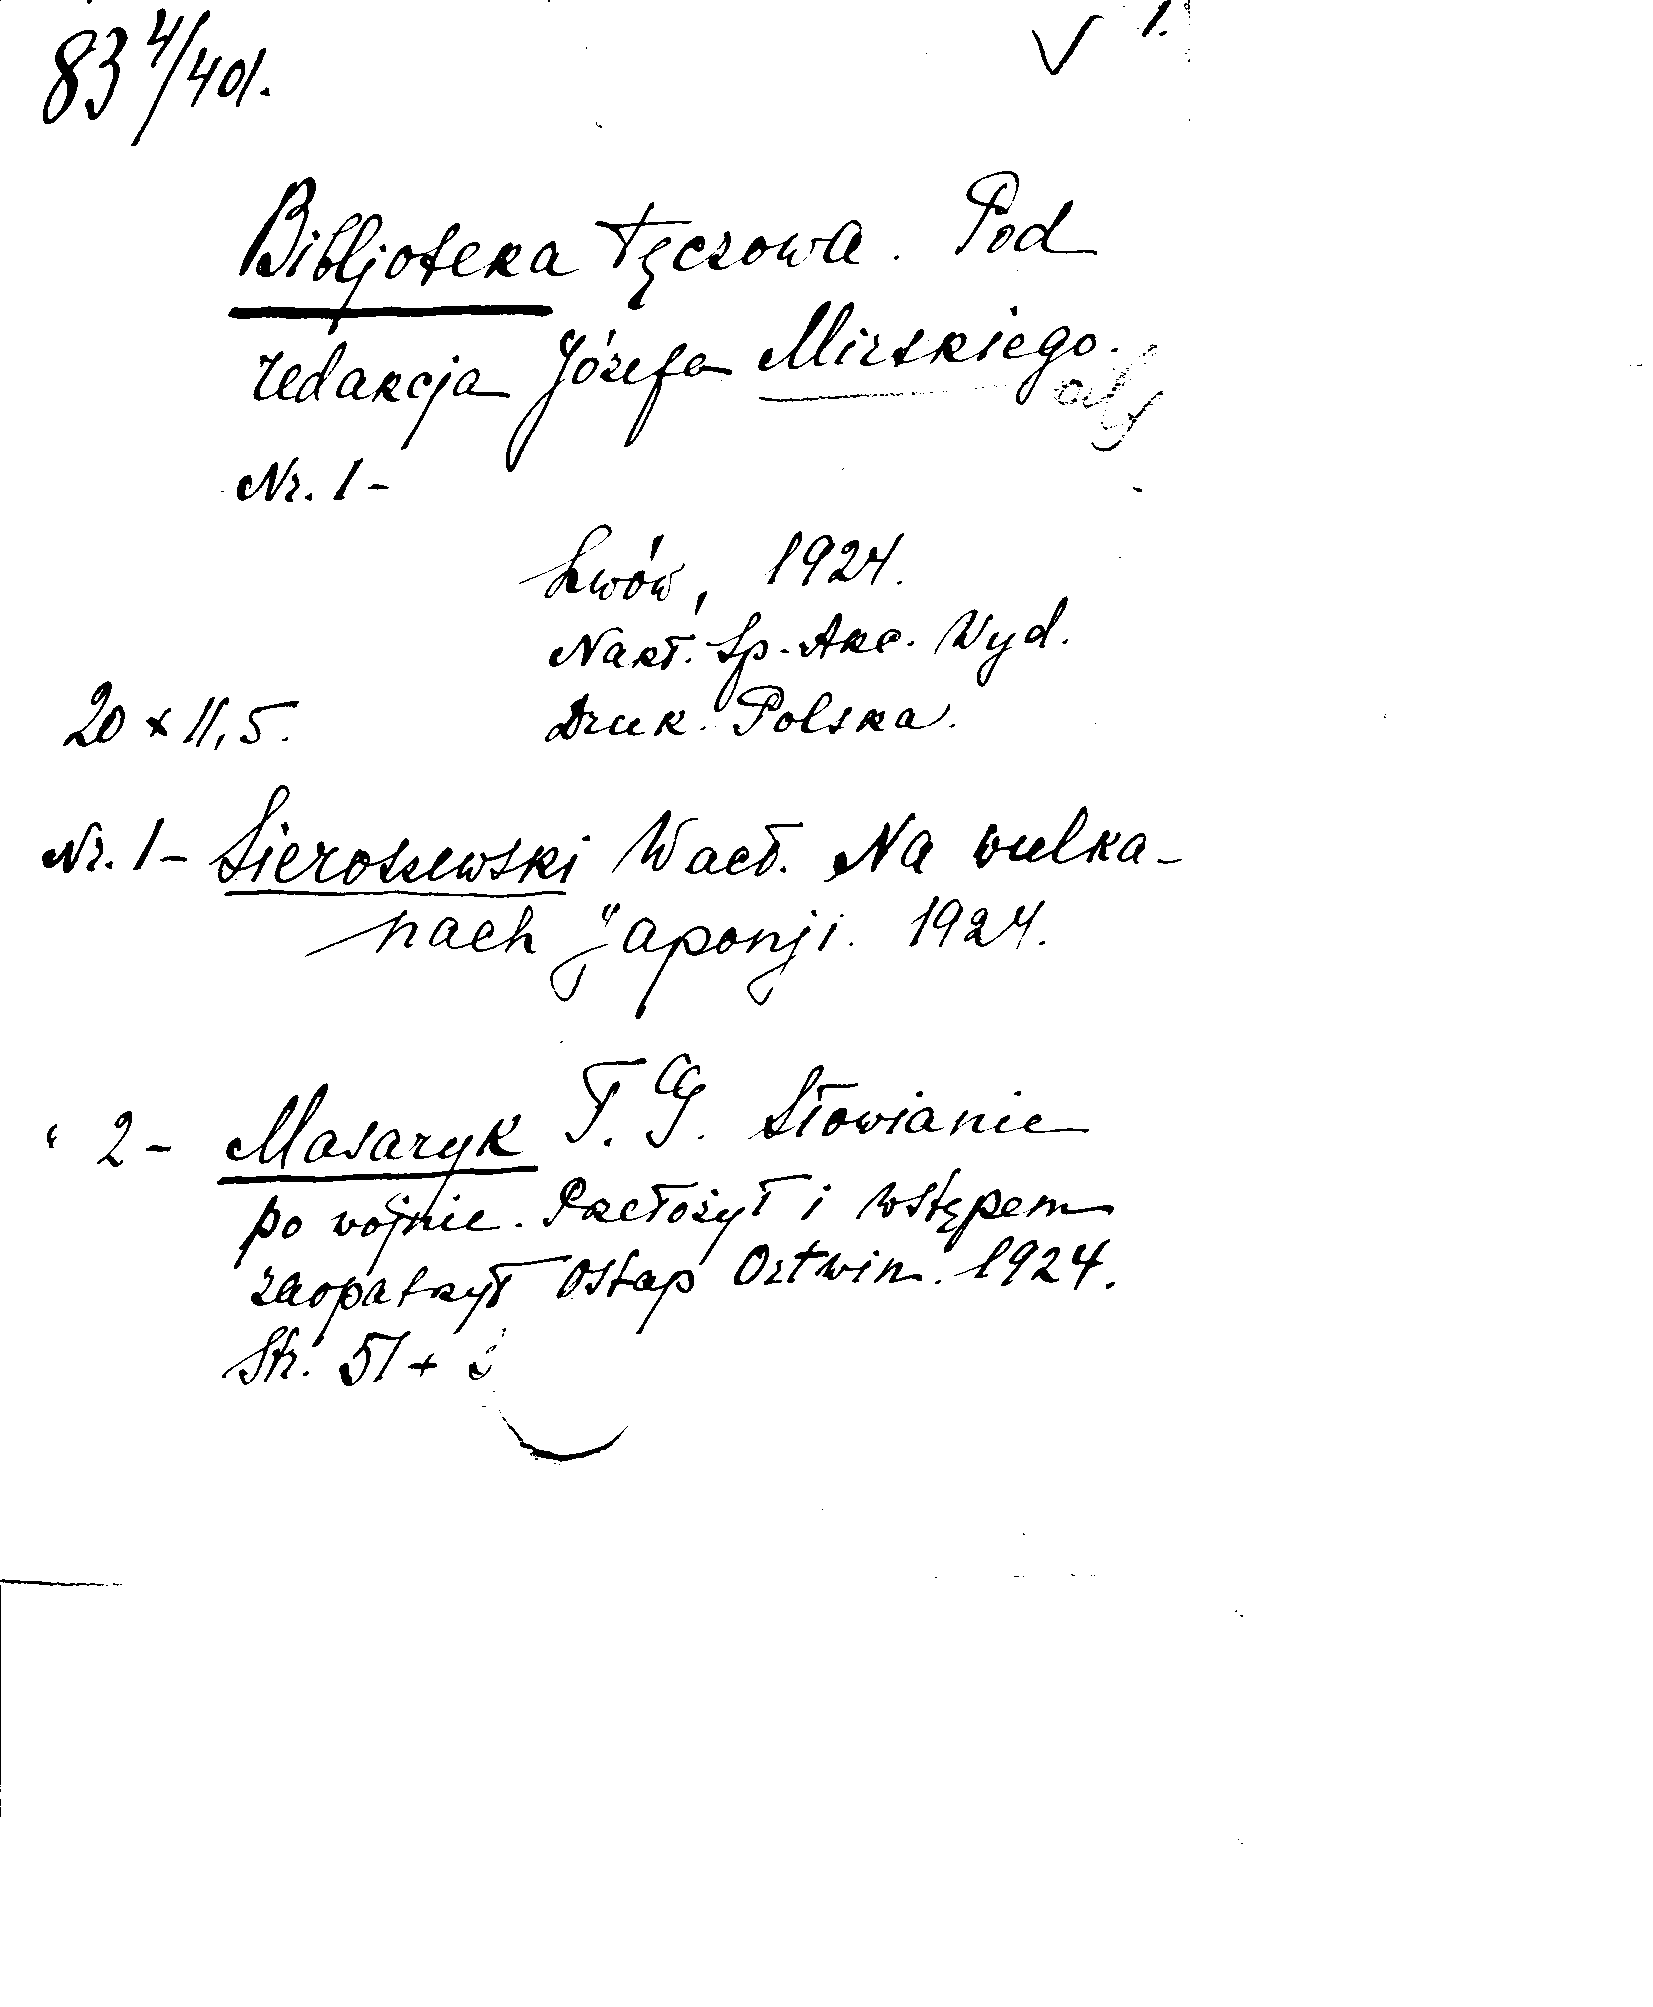 83 4/401. √ 1.
Bibljoteka tęczowa. Pod
redakcja Józefa Mirskiego.
Nr. 1 -
Lwów, 1924.
Nakł. Sp. Akc. Wyd.
20 x 11,5. Druk. Polska.
Nr. 1 - Sieroszewski Wacł. Na wulka-
nach Japonji. 1924.
" 2 - Masaryk T. G. Słowianie
po wojnie. Przełożył i wstępem
zaopatrzył Ostap Ortwin. 1924.
Str. 51 +